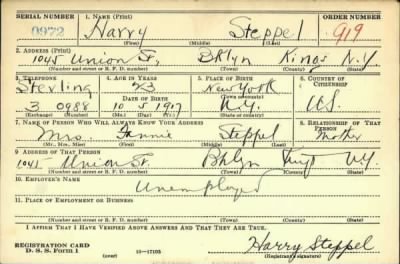 SERIAL NUMBER 1. NAME (Print) ORDER NUMBER
0972 Harry Steppel 919
(First) (Middle) (Last)
2. ADDRESS (Print)
1045 Union St, Bklyn Kings N.Y.
(Number and street or R. F. D. number) (Town) (County) (State)
3. TELEPHONE 4. AGE IN YEARS 5. PLACE OF BIRTH 6. COUNTRY OF CITIZENSHIP
Sterling 23 New York
DATE OF BIRTH (Town or county)
3 0988 10 5 1917 N.Y. U.S.
(Exchange) (Number) (Mo.) (Day) (Yr.) (State or country)
7. NAME OF PERSON WHO WILL ALWAYS KNOW YOUR ADDRESS 8. RELATIONSHIP OF THAT PERSON
Mrs. Fannie Steppel Mother
(Mr., Mrs., Miss) (First) (Middle) (Last)
9. ADDRESS OF THAT PERSON
1045 Union St. Bklyn Kings N.Y.
(Number and street or R. F. D. number) (Town) (County) (State)
10. EMPLOYER'S NAME
Unemployed
11. PLACE OF EMPLOYMENT OR BUSINESS
(Number and street or R. F. D. number) (Town) (County) (State)
I AFFIRM THAT I HAVE VERIFIED ABOVE ANSWERS AND THAT THEY ARE TRUE.
REGISTRATION CARD
D. S. S. Form 1 (over) 16—17105 Harry Steppel
(Registrant's signature)